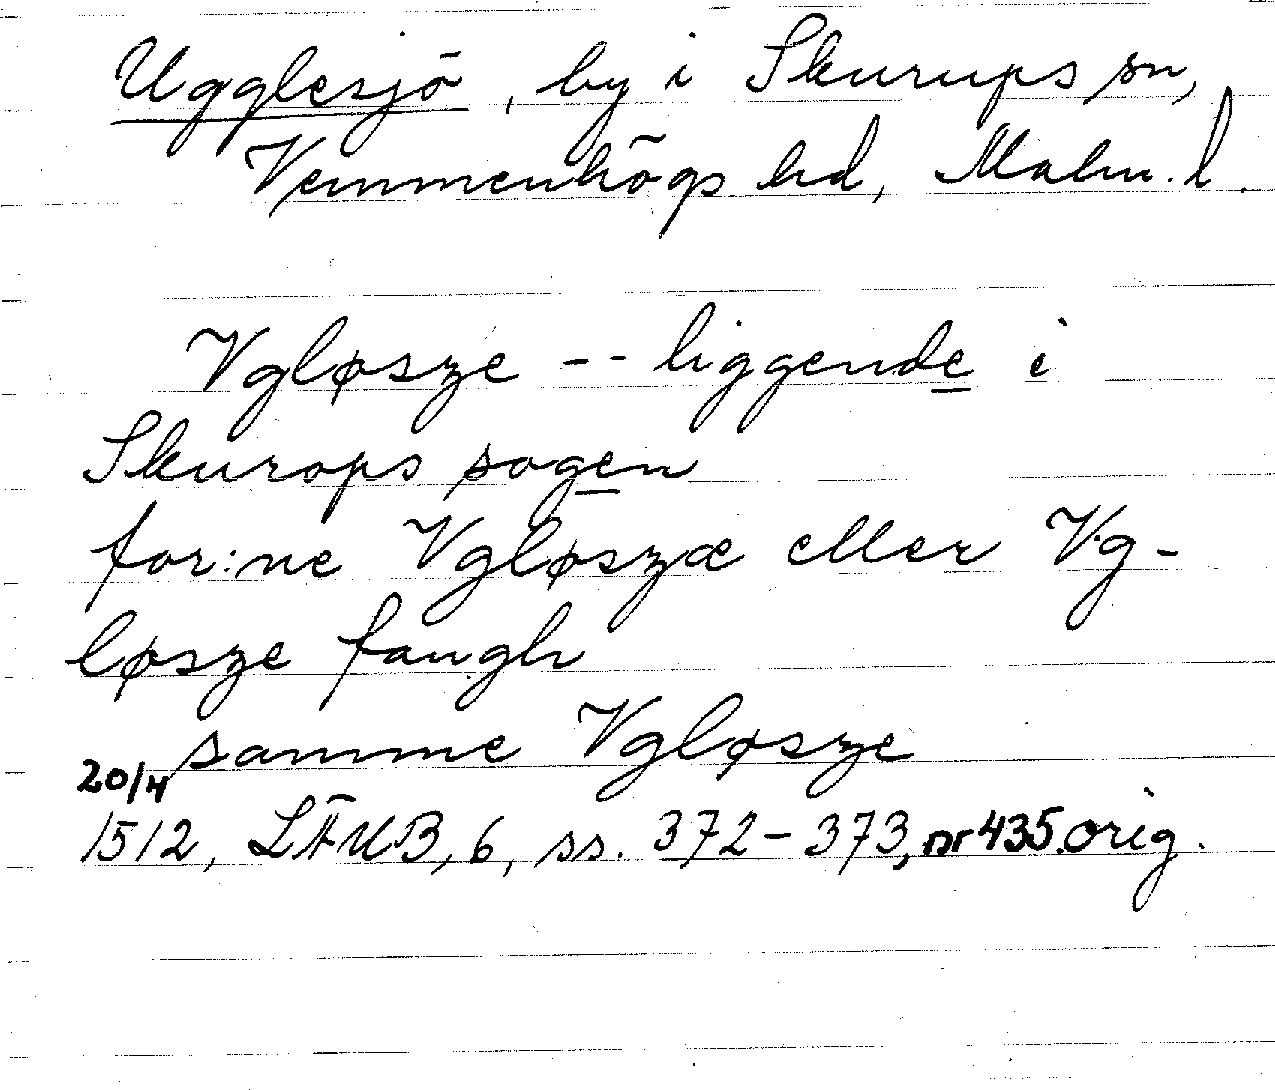 Ugglesjö, by i Skurups sn,
Vemmenhögs hd, Malm. l.
Vgløsze -- liggende i
Skurops sogen
for:ne Vgløszæ eller Vg-
løsze fangh
samme Vgløsze
20/4
1512, LÄUB, 6, ss. 372-373, nr 435. orig.